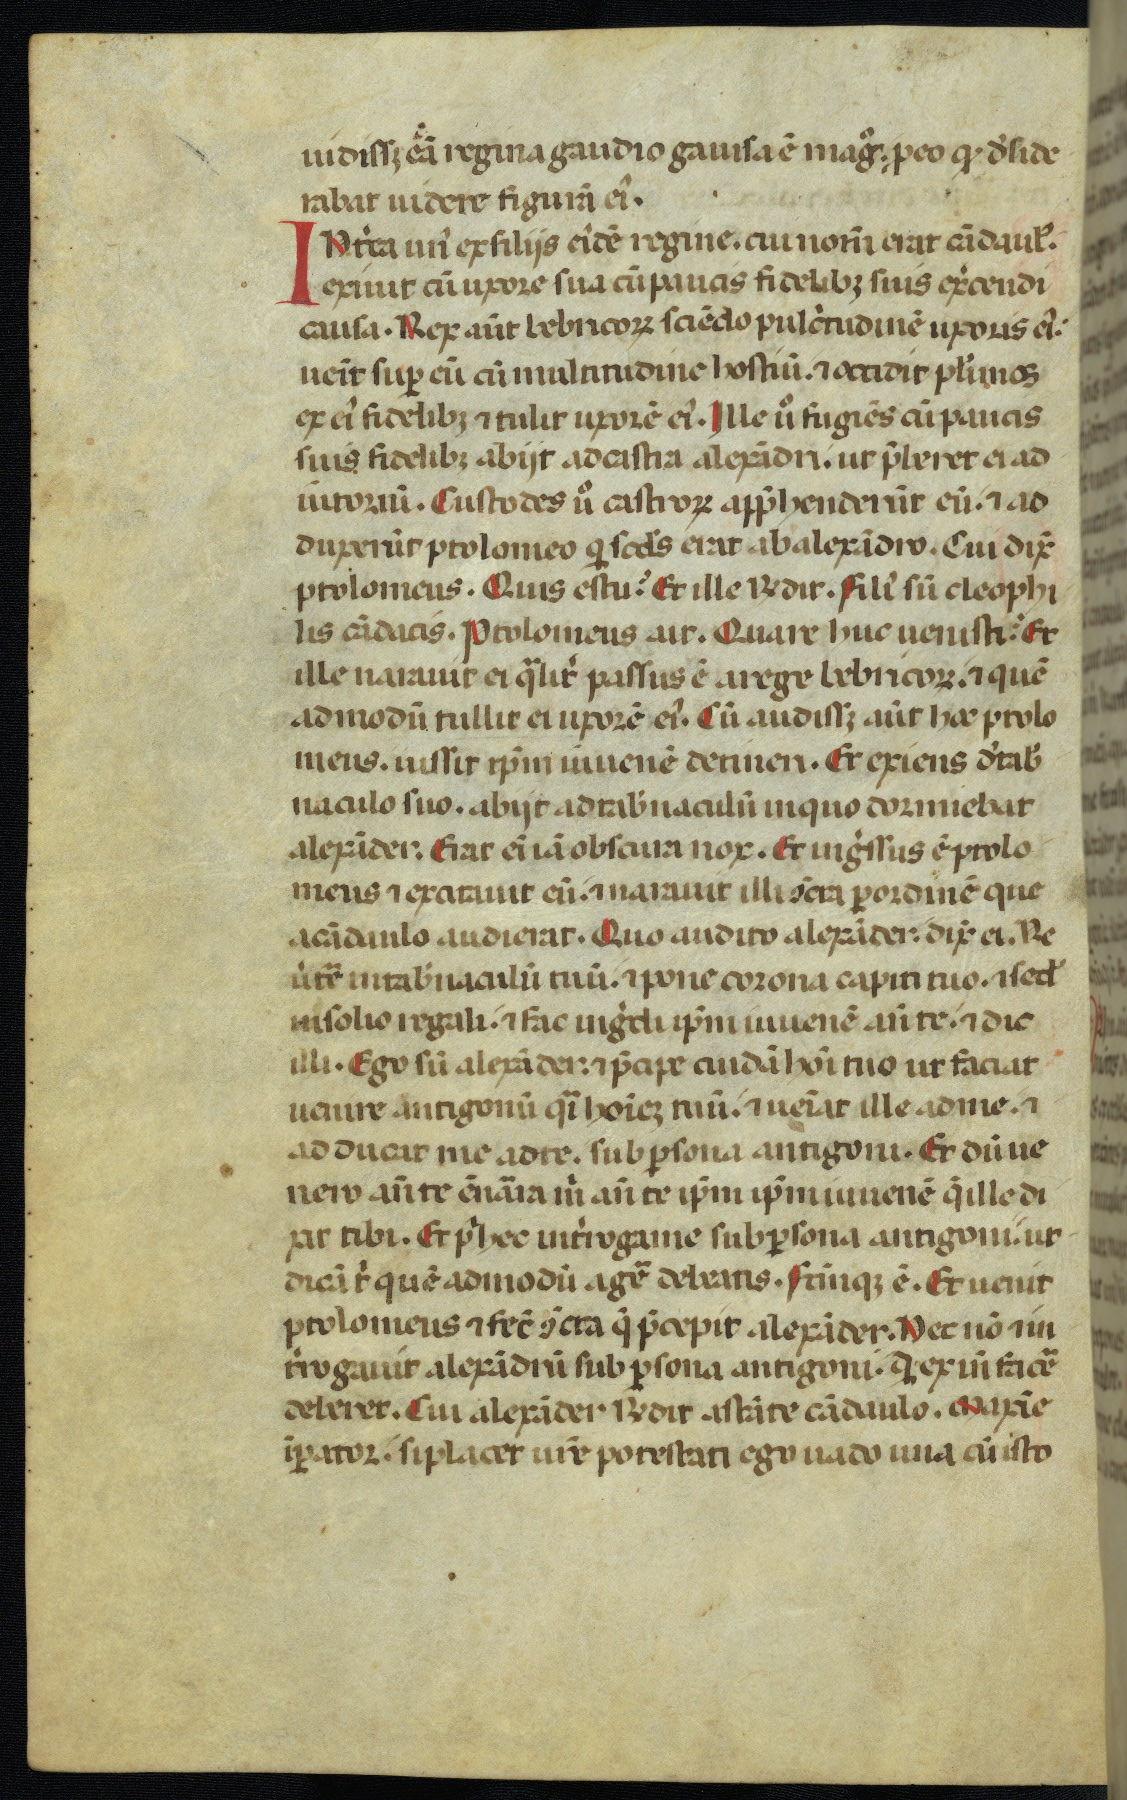 uidissꝫ eā regina gaudio gauisa ē mag̊. p eo qꝫ dʼside
rabat uidere figurā eiʼ.
INtʼea unʼ ex filijs eiʼdē regine. cui nom̄ erat cādaulʼ.
exiuit cū uxore sua cū paucis fidelibꝫ suis exʼcendi
causa. Rex aūt bebricoꝝ sciēdo pulcʼtudinē uxoris eiʼ.
ueīt suꝑ eū cū multitudine hostiū. ⁊ occidit plʼimos
ex eiʼ fidelibꝫ ⁊ tulit uxorē eiʼ. Ille uͦ fugiēs cū paucis
suis fidelibꝫ abijt ad castra alexādri. ut p̄beret ei ad
iutoriū. Custodes uͦ castroꝝ app̄henderūt eū. ⁊ ad
duxerūt ptolomeo qͥ scds erat ab alexādro. Cui dix̄
ptolomeus. Quis es tu? Et ille Rʼdit. filiʼ sū cleophi
lis cādacis. Ptolomeus ait. Quare huc uenisti? Et
ille narauit ei qᷓlitʼ passus ē a rege bebricoꝝ. ⁊ quē
admodū tullit ei uxorē eiʼ. Cū audissꝫ aūt hoc ptolo
meus. iussit ip̄m iuuenē detineri. Et exiens dʼ tabʼ
naculo suo. abijt ad tabʼnaculū in quo dormiebat
alexāder. Erat eī iā obscura nox. Et ingʼssus ē ptolo
meus ⁊ excitauit eū. ⁊ narauit illi ꝯcta ꝑ ordinē que
a cādaulo audierat. Quo audito alexāder. dix̄ ei. Re
uʼtē in tabʼnaculū tuū. ⁊ pone corona capiti tuo. ⁊ sedʼ
in solio regali. ⁊ fac ingʼdi ip̄m iuuenē aūte. ⁊ dic
illi. Ego sū alexāder. ⁊ p̄cipe cuidā hoī tuo ut faciat
uenire antigonū qᷓi hoīeꝫ tuū. ⁊ ueīat ille ad me. ⁊
adducat me ad te. sub ꝑsona antigoni. Et dū ue
nero an̄ te ēnāra m̄ an̄ te ip̄m ip̄m iuuenē q̄ ille di
xit tibi. Et pʼ hec intʼrogame sub ꝑsona antigoni. ut
dicā tʼ quē admodū agē debeatis. Fc̄ūqꝫ ē. Et uenit
ptolomeus ⁊ fec̄ ꝯcta q̄ p̄cepit alexāder. Nec nō ⁊ in
tʼrogauit alexādrū sub ꝑsona antigoni. qͥ ex iū facē
deberet. Cui alexāder Rʼdit astāte cādaulo. Maxīe
īꝑator. si placet ur̄e potestati ego uado una cū isto